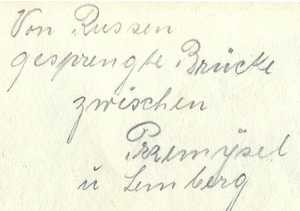 Von Russen
gesprengte Brücke
zwischen
Przemÿsel
u Lemberg